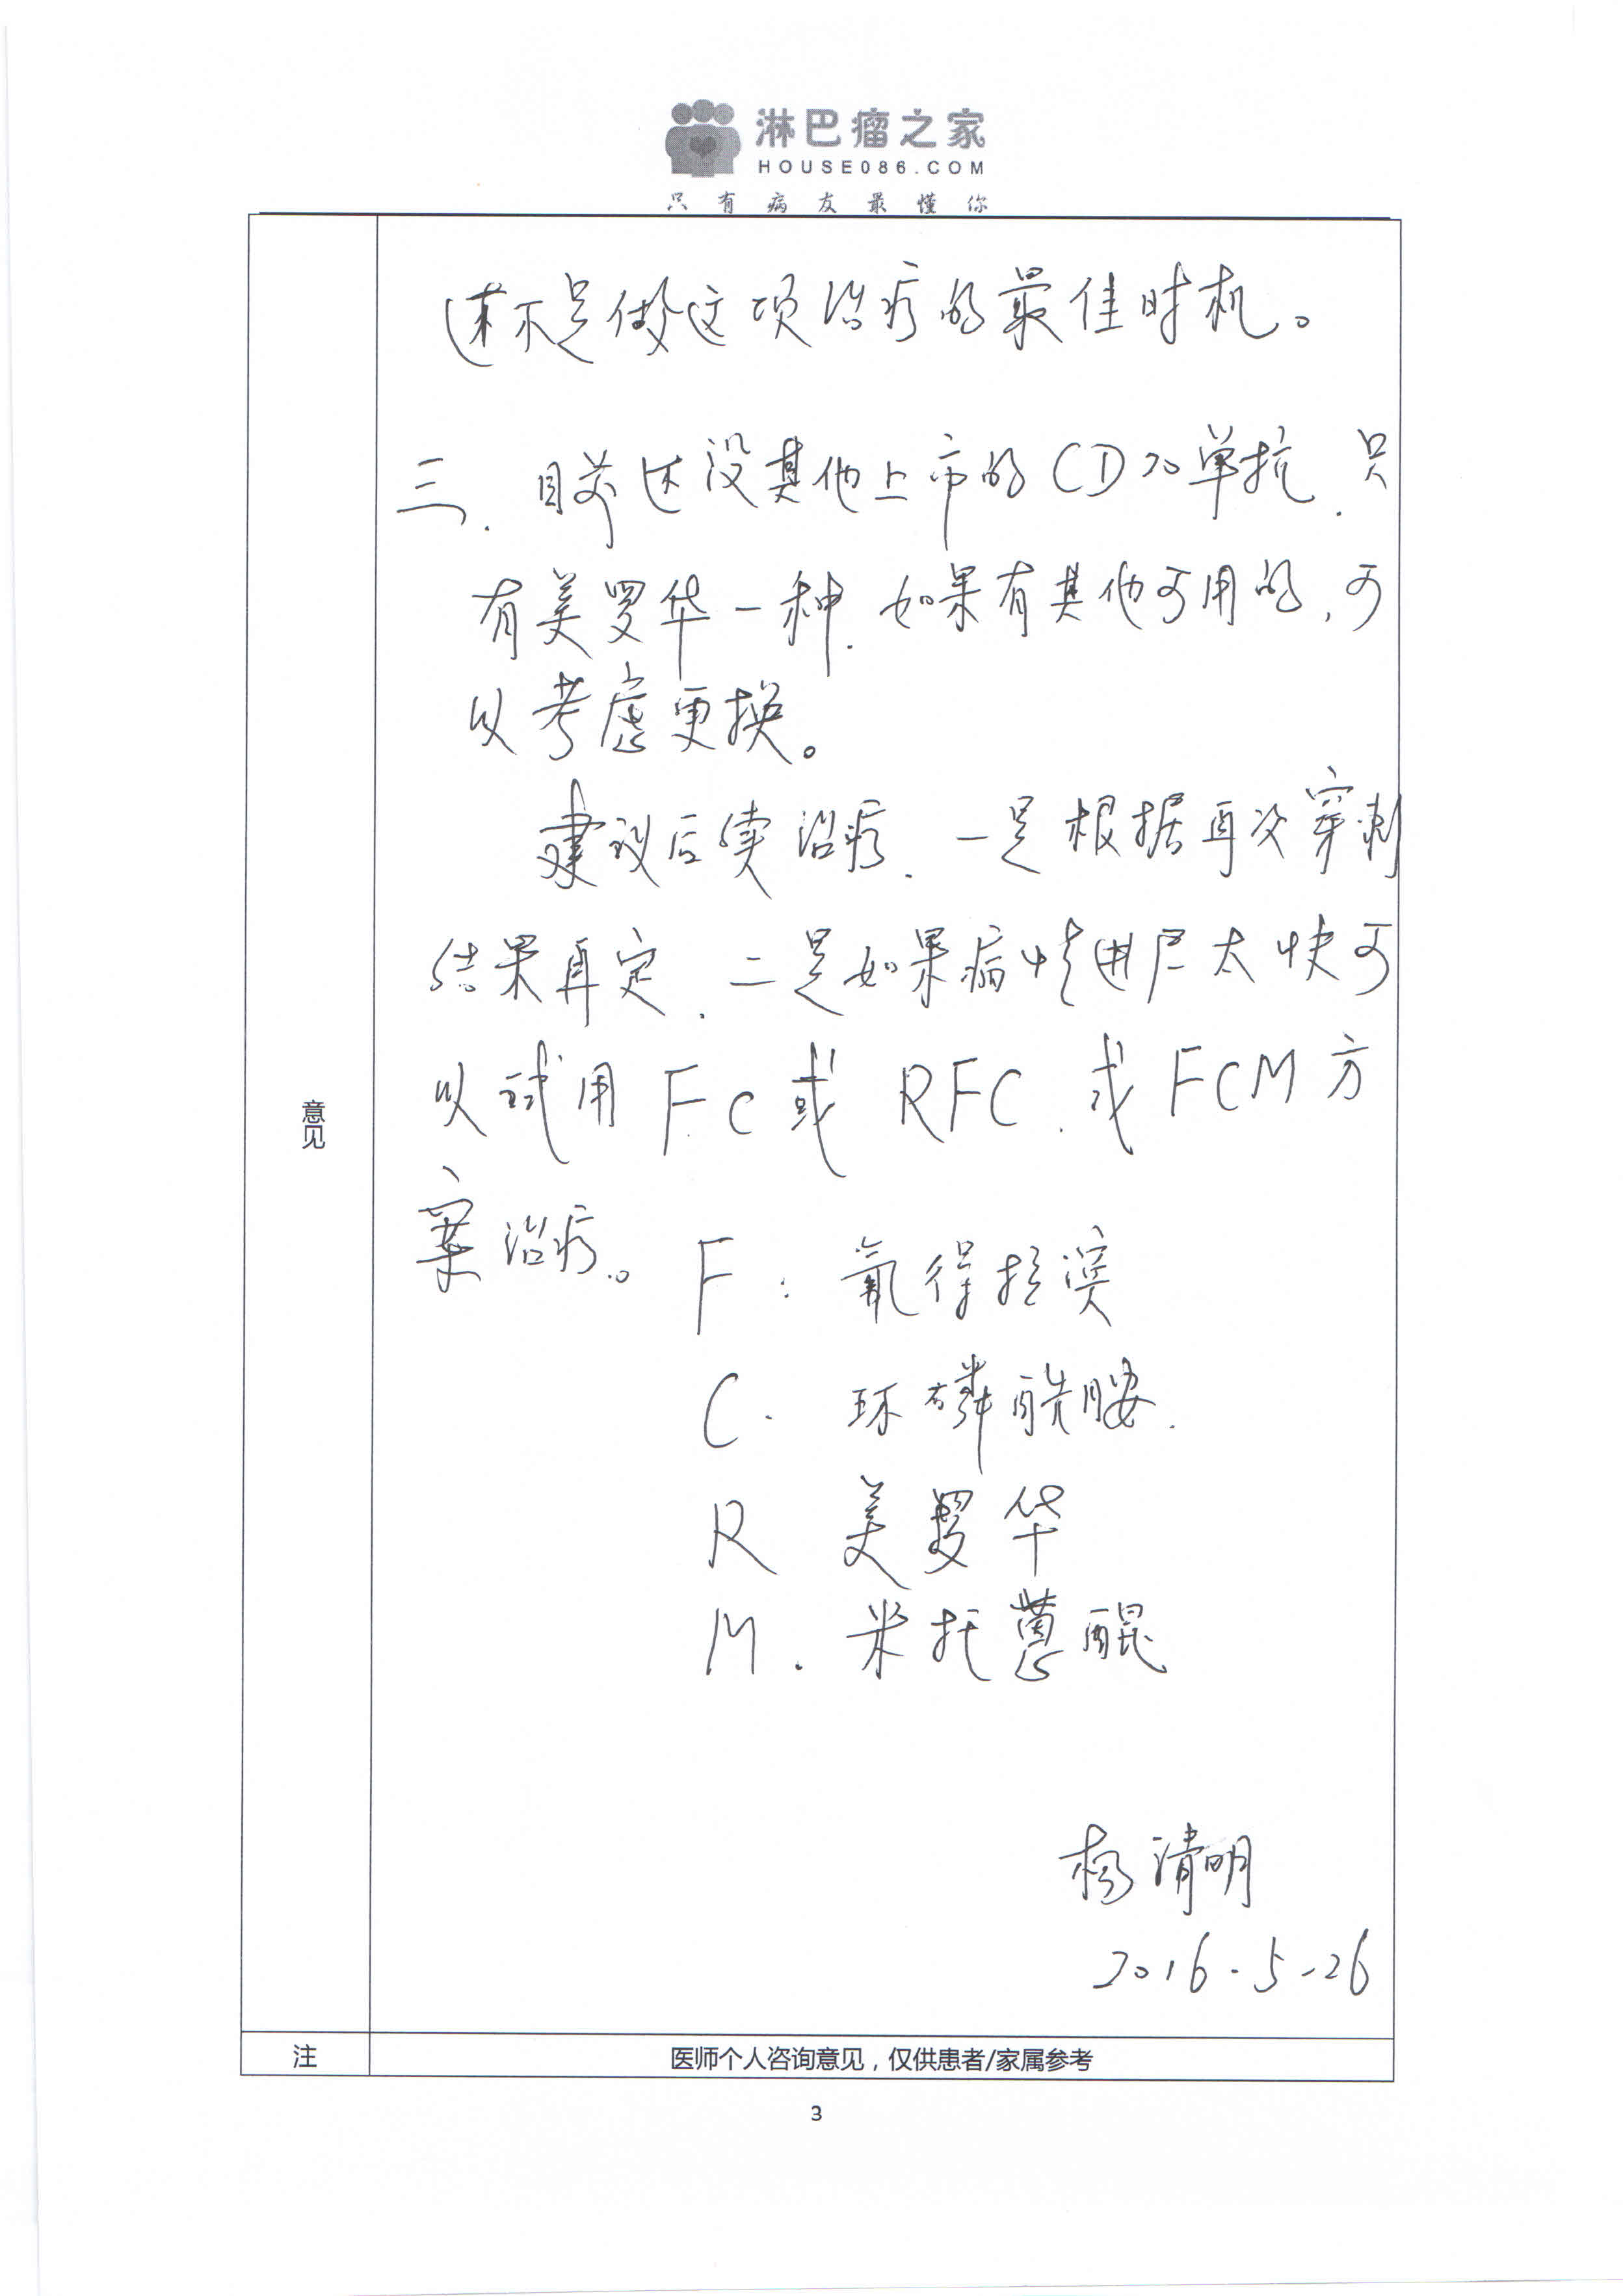 淋巴瘤之家
HOUSE086.COM
只有病友最懂你
还不是做这项治疗的最佳时机。
三.目前还没其他上市的CD20单抗.只
有美罗华一种.如果有其他可用的,可
以考虑更换。
建议后续治疗.一是根据再次穿刺
结果再定.二是如果病情进展太快可
以试用FC或RFC.或FCM方
案治疗。
F:氟得拉滨
C.环磷酰胺.
R 美罗华
M.米托蒽醌
杨清明
2016-5-26
意见
注
医师个人咨询意见,仅供患者/家属参考
3